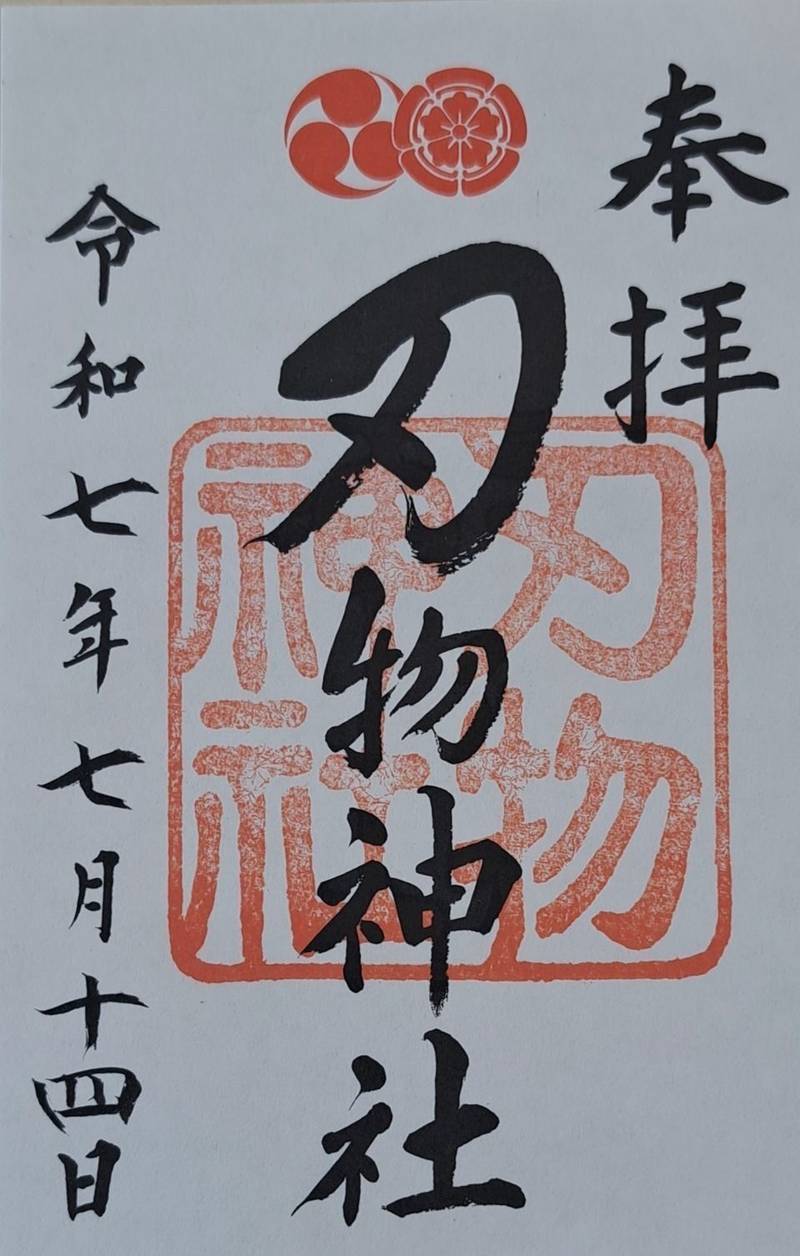 奉拝
刃物神社
刃物
神社
令和七年七月十四日